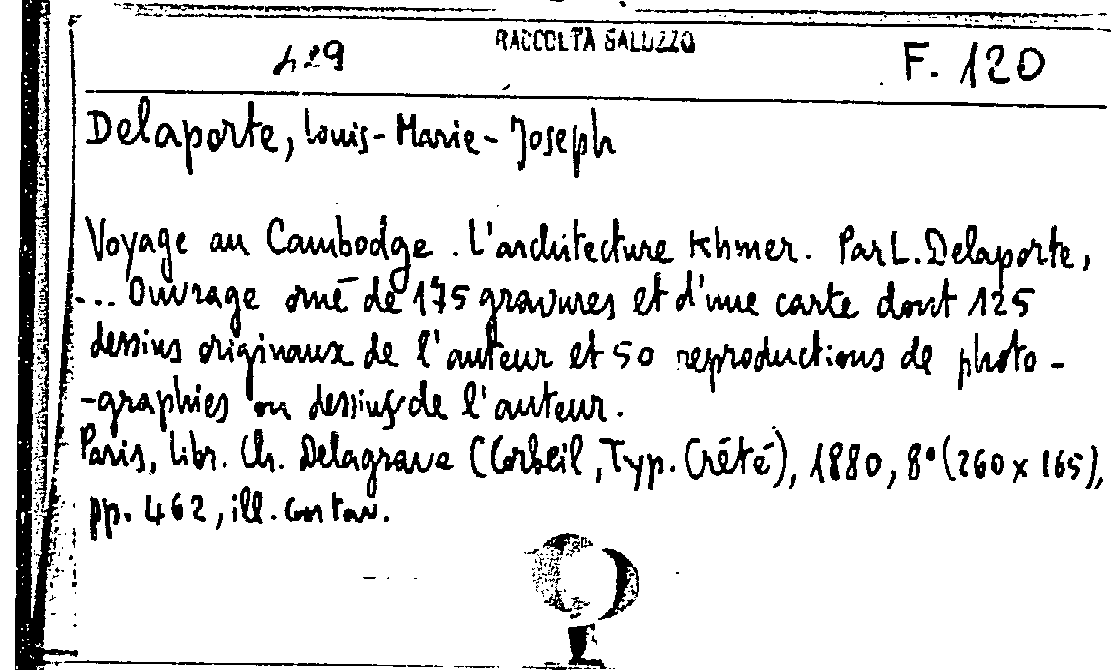 RACCOLTA SALUZZO
429 F. 120
Delaporte, Louis-Marie-Joseph
Voyage au Cambodge. L'architecture Khmer. Par L. Delaporte,
... Ouvrage orné de 175 gravures et d'une carte dont 125
dessins originaux de l'auteur et 50 reproductions de photo-
-graphies ou dessins de l'auteur.
Paris, Libr. Ch. Delagrave (Corbeil, Typ. Crété), 1880, 8° (260 x 165),
pp. 462, ill. con tav.